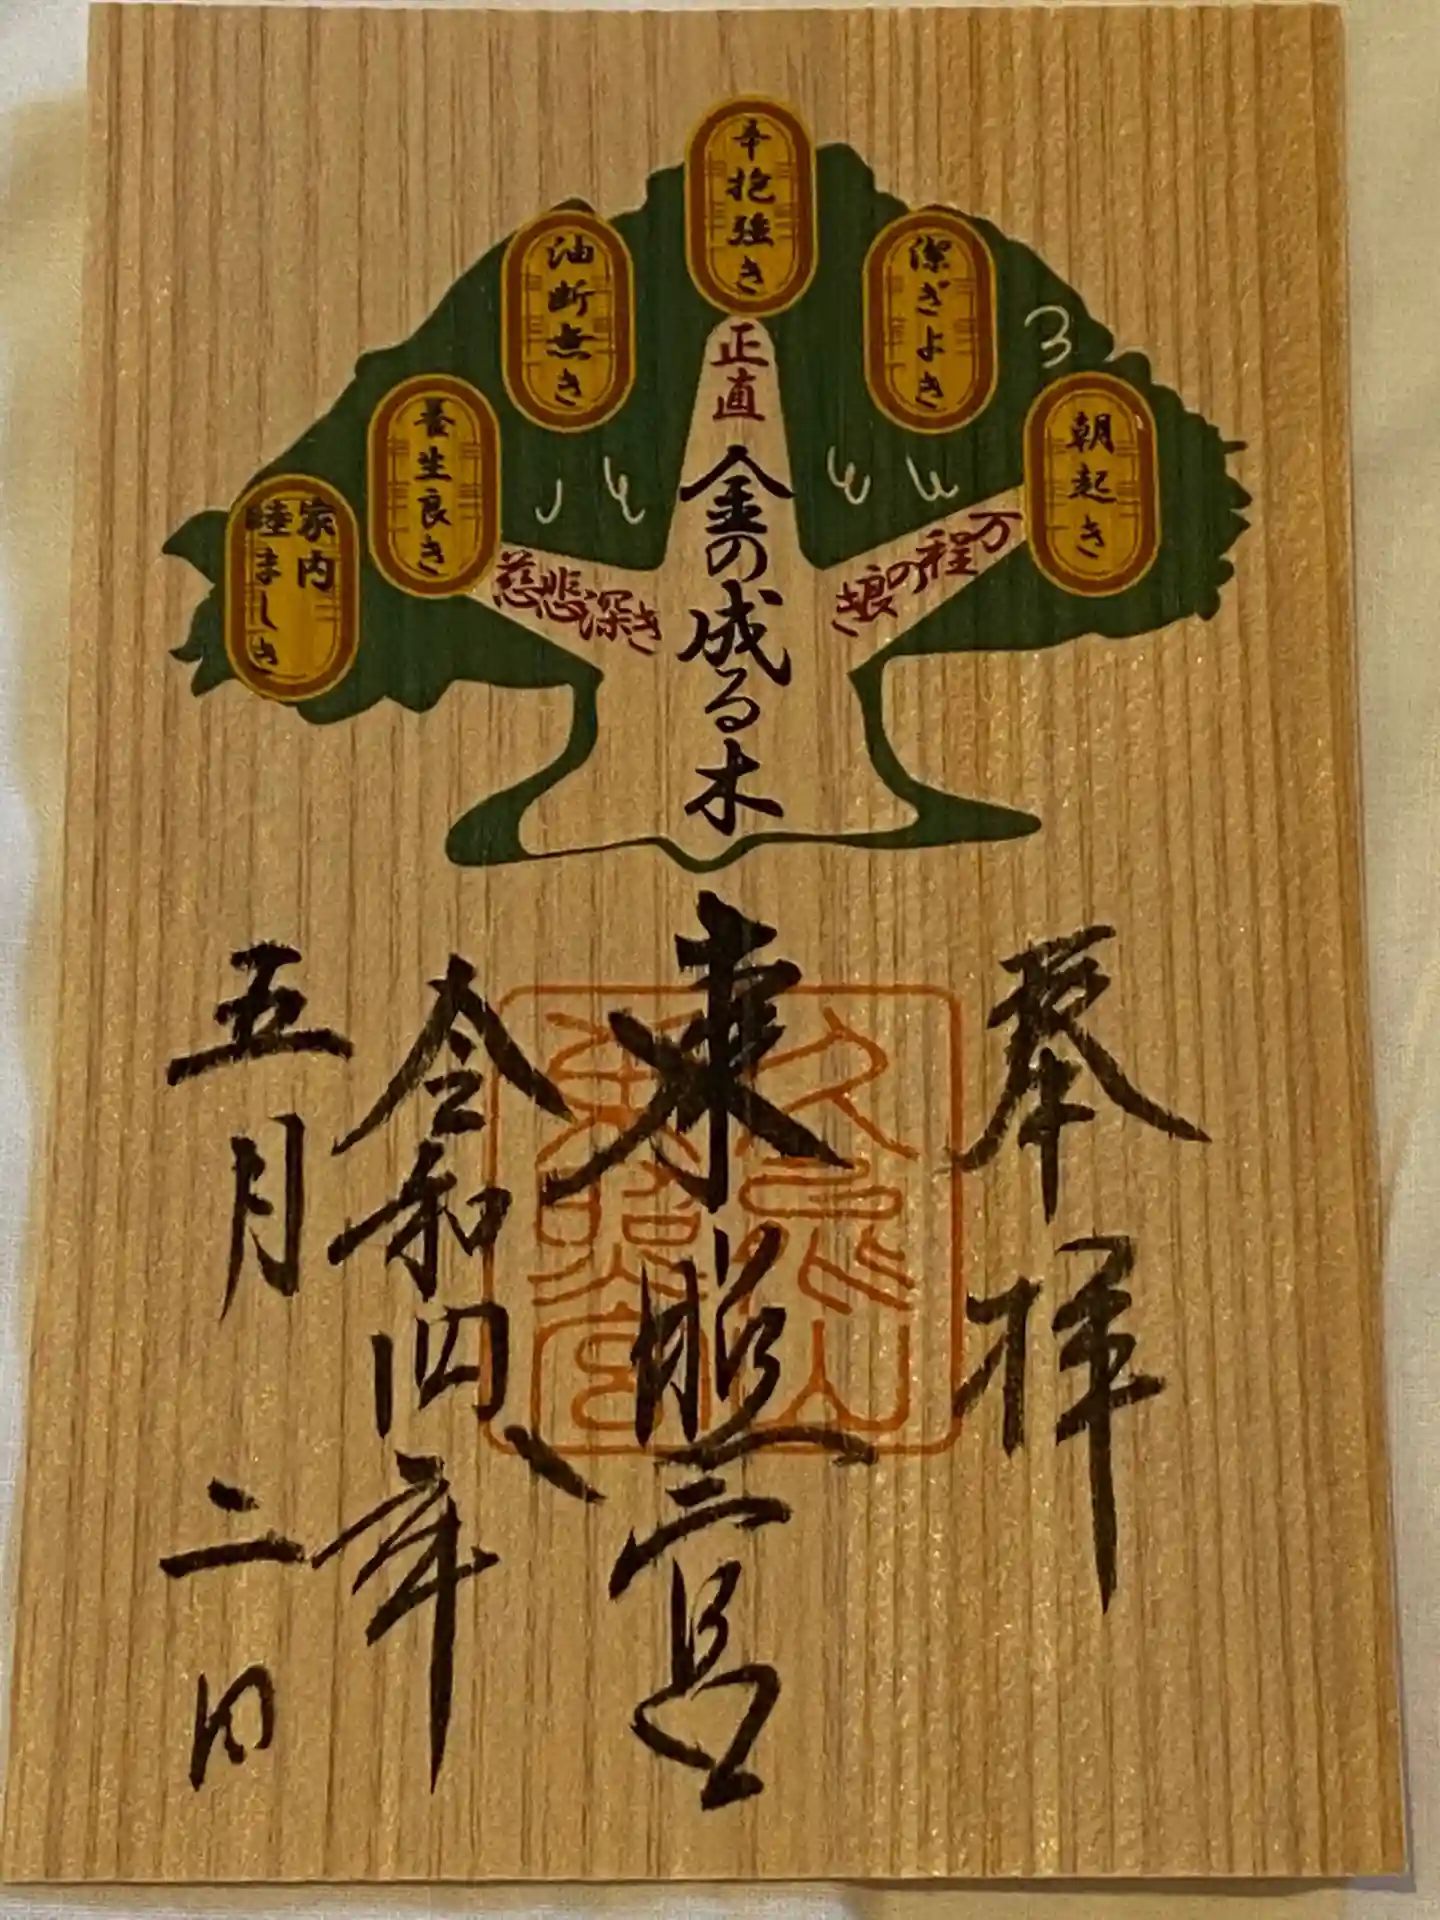 朝起き
潔ぎよき
辛抱強き
油断無き
養生良き
家内
睦ましき
万程の能き
正直
慈悲深き
金の成る木
奉拝
東照宮
令和四年
五月二日
久能山
東照宮